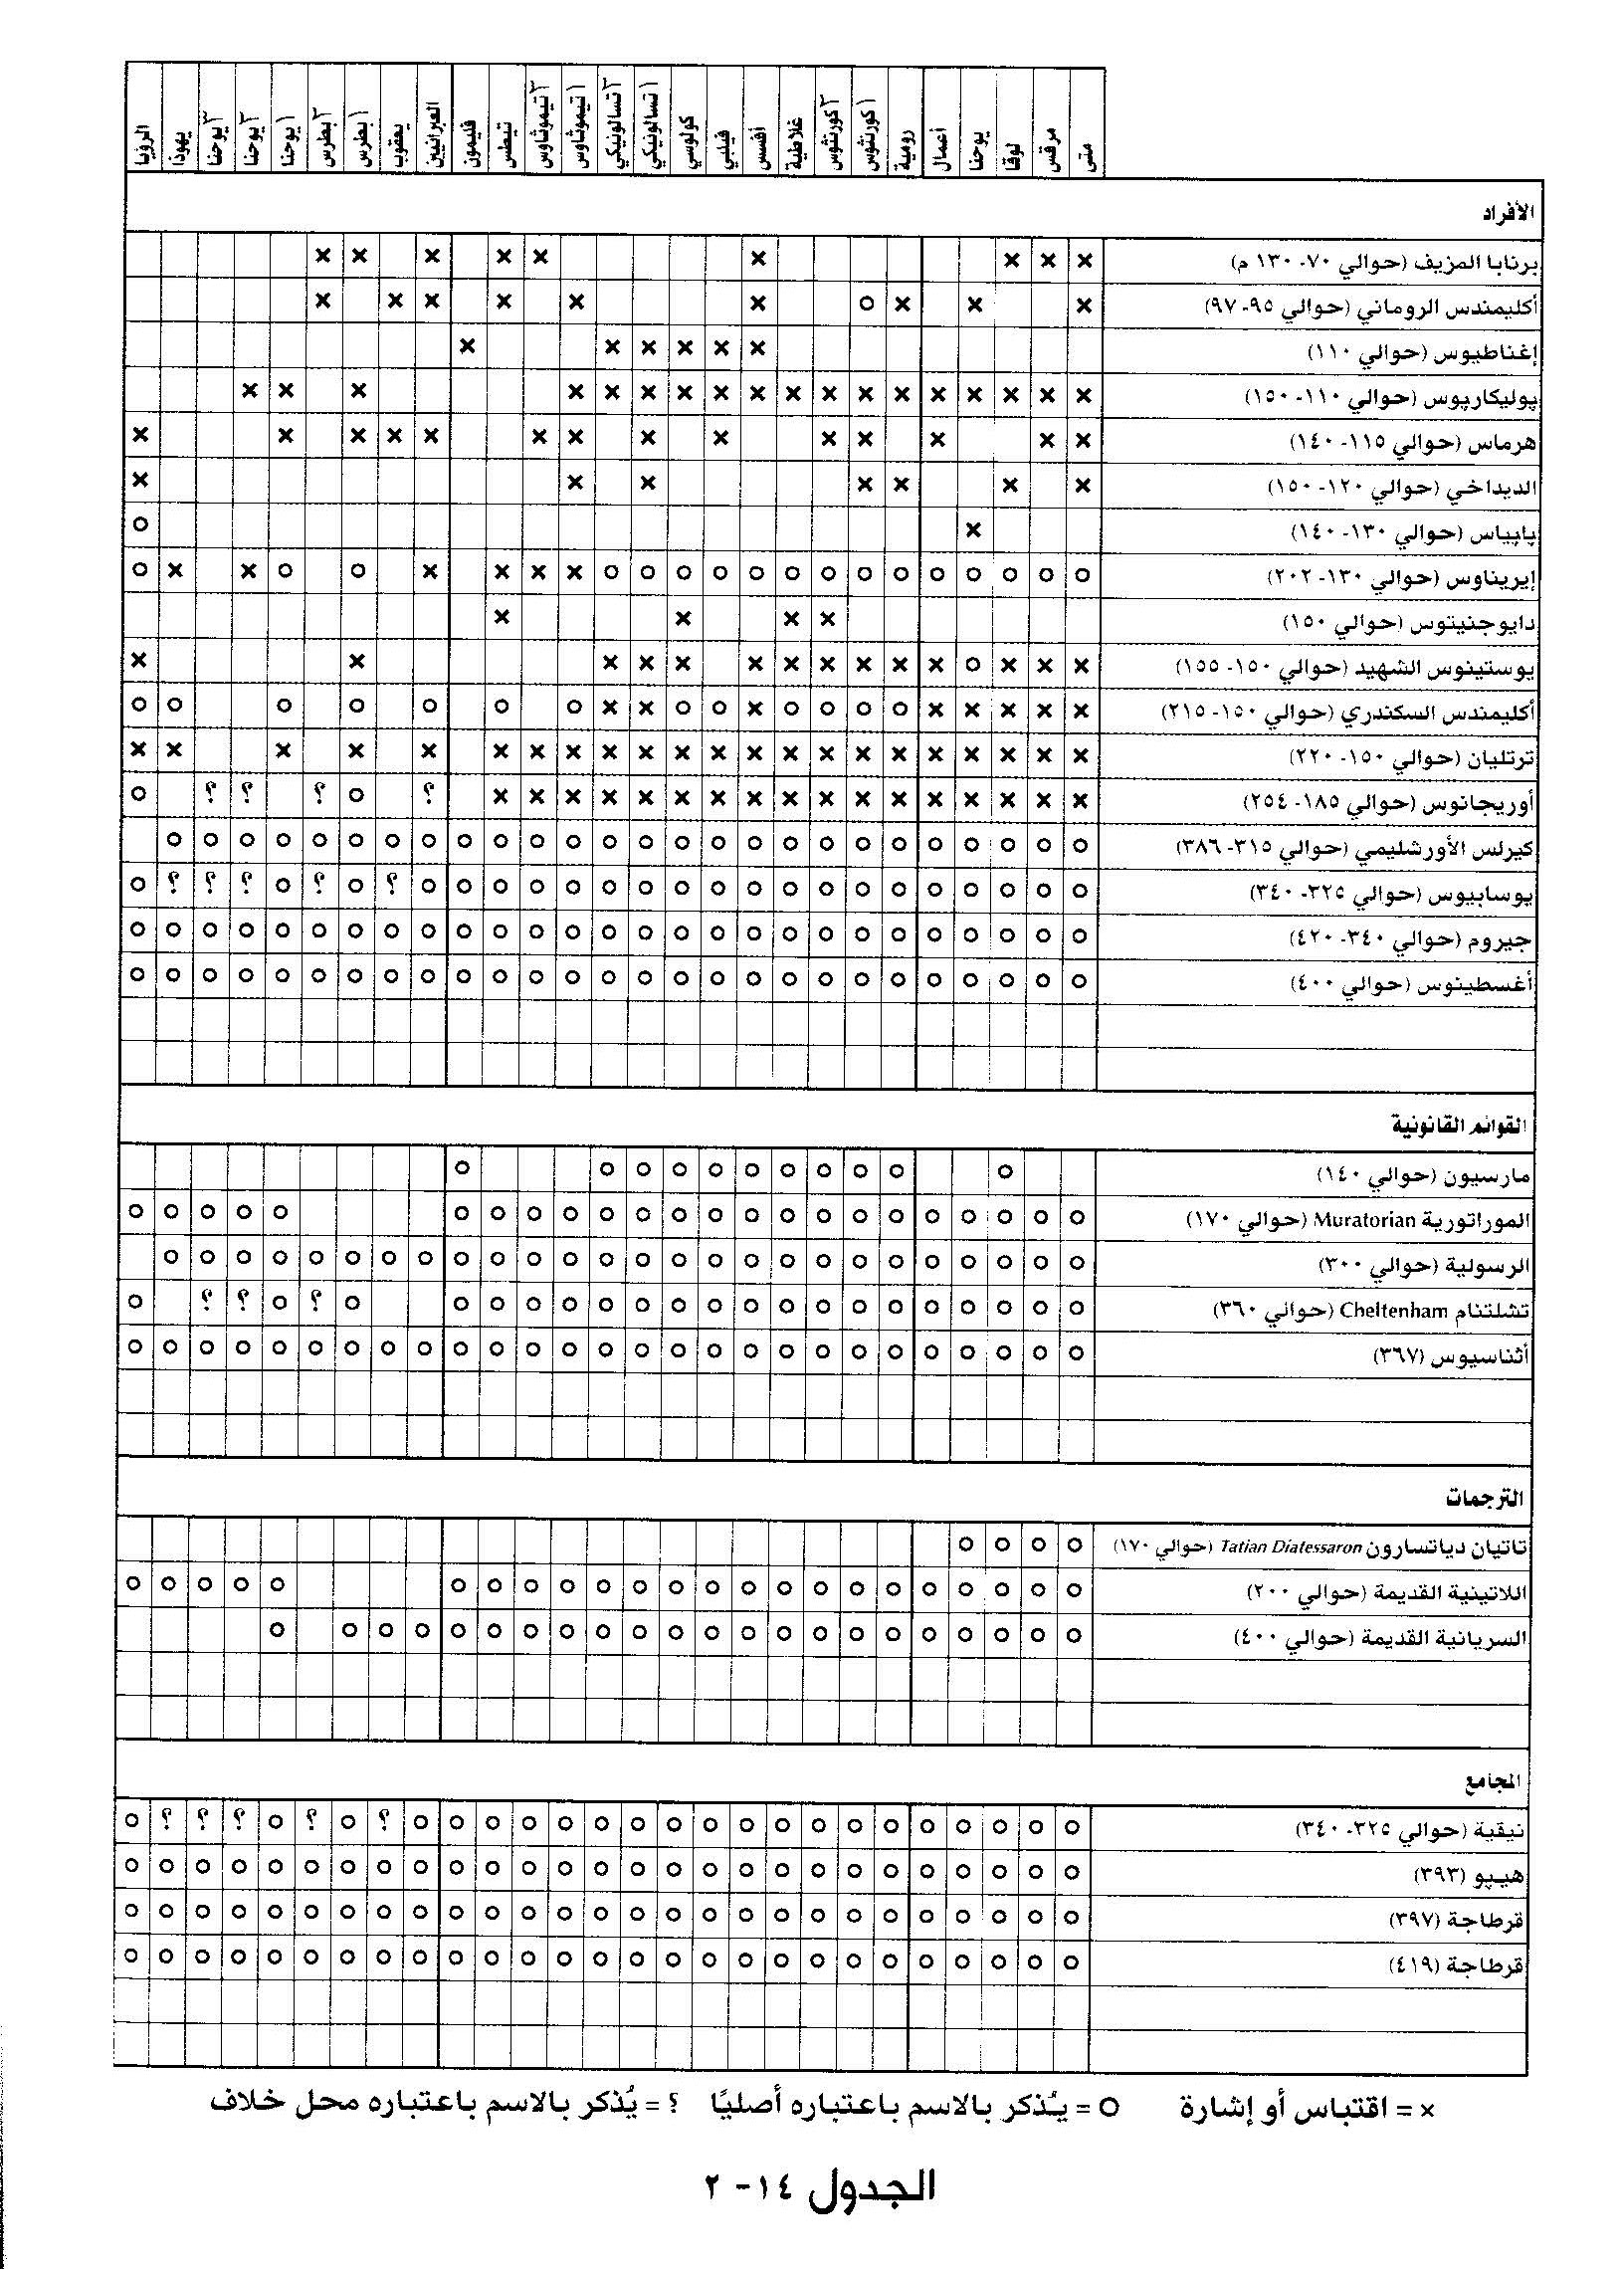 متى مرقس لوقا يوحنا أعمال رومية ١كورنثوس ٢كورنثوس غلاطية أفسس فيلبي كولوسي ١تسالونيكي ٢تسالونيكي ١تيموثاوس ٢تيموثاوس تيطس فليمون العبرانيين يعقوب ١بطرس ٢بطرس ١يوحنا ٢يوحنا ٣يوحنا يهوذا الرؤيا
الأفراد
برنابا المزيف (حوالي ٧٠- ١٣٠ م) × × × × × × × × ×
أكليمندس الروماني (حوالي ٩٥- ٩٧) × × × O × × × × × ×
إغناطيوس (حوالي ١١٠) × × × × × ×
پوليكارپوس (حوالي ١١٠- ١٥٠) × × × × × × × × × × × × × × × × × ×
هرماس (حوالي ١١٥- ١٤٠) × × × × × × × × × × × × × ×
الديداخي (حوالي ١٢٠- ١٥٠) × × × × × × ×
پاپياس (حوالي ١٣٠- ١٤٠) × O
إيريناوس (حوالي ١٣٠- ٢٠٢) O O O O O O O O O O O O O O × × × × O O × × O
دايوجنيتوس (حوالي ١٥٠) × × × ×
يوستينوس الشهيد (حوالي ١٥٠- ١٥٥) × × × O × × × × × × × × × × ×
أكليمندس السكندري (حوالي ١٥٠- ٢١٥) × × × × × O O O O × O O × × O O O O O O O
ترتليان (حوالي ١٥٠- ٢٢٠) × × × × × × × × × × × × × × × × × × × × × ×
أوريجانوس (حوالي ١٨٥- ٢٥٤) × × × × × × × × × × × × × × × × × ؟ O ؟ ؟ ؟ O
كيرلس الأورشليمي (حوالي ٣١٥- ٣٨٦) O O O O O O O O O O O O O O O O O O O O O O O O O O
يوسابيوس (حوالي ٣٢٥- ٣٤٠) O O O O O O O O O O O O O O O O O O O ؟ O ؟ O ؟ ؟ ؟ O
جيروم (حوالي ٣٤٠- ٤٢٠) O O O O O O O O O O O O O O O O O O O O O O O O O O O
أغسطينوس (حوالي ٤٠٠) O O O O O O O O O O O O O O O O O O O O O O O O O O O
القوائم القانونية
مارسيون (حوالي ١٤٠) O O O O O O O O O O O
الموراتورية Muratorian (حوالي ١٧٠) O O O O O O O O O O O O O O O O O O O O O O O
الرسولية (حوالي ٣٠٠) O O O O O O O O O O O O O O O O O O O O O O O O O O
تشلتنام Cheltenham (حوالي ٣٦٠) O O O O O O O O O O O O O O O O O O O ؟ O ؟ ؟ O
أثناسيوس (٣٦٧) O O O O O O O O O O O O O O O O O O O O O O O O O O O
الترجمات
تاتيان دياتسارون Tatian Diatessaron (حوالي ١٧٠) O O O O
اللاتينية القديمة (حوالي ٢٠٠) O O O O O O O O O O O O O O O O O O O O O O O
السريانية القديمة (حوالي ٤٠٠) O O O O O O O O O O O O O O O O O O O O O O
المجامع
نيقية (حوالي ٣٢٥- ٣٤٠) O O O O O O O O O O O O O O O O O O O ؟ O ؟ O ؟ ؟ ؟ O
هيپو (٣٩٣) O O O O O O O O O O O O O O O O O O O O O O O O O O O
قرطاجة (٣٩٧) O O O O O O O O O O O O O O O O O O O O O O O O O O O
قرطاجة (٤١٩) O O O O O O O O O O O O O O O O O O O O O O O O O O O
× = اقتباس أو إشارة O = يُذكر بالاسم باعتباره أصليًا ؟ = يُذكر بالاسم باعتباره محل خلاف
الجدول ١٤- ٢